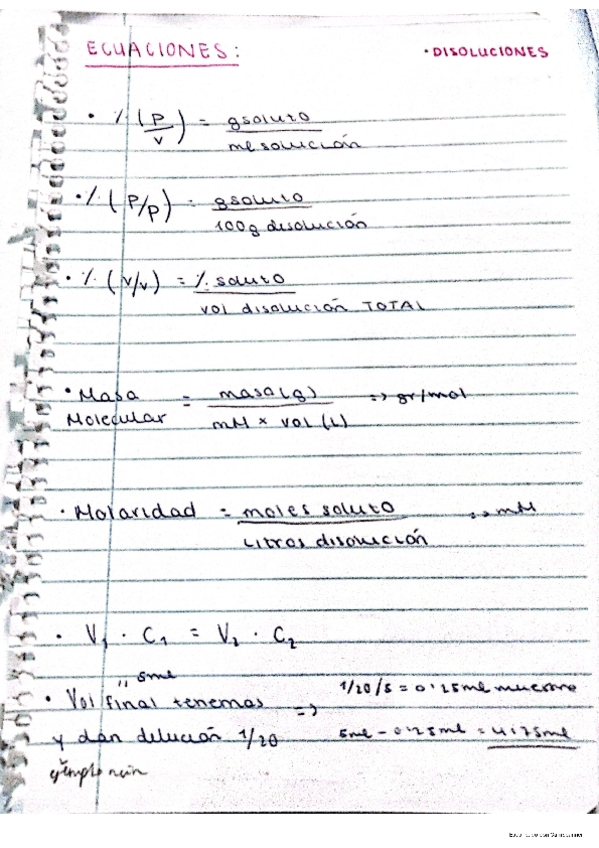 ECUACIONES: · DISOLUCIONES
· % (P/V) = gsoluto / ml solución
· % (P/P) = gsoluto / 100g disolución
· % (V/V) = % soluto / vol disolución TOTAL
· Masa Molecular = masa(g) / mM × vol (L) => gr/mol
· Molaridad = moles soluto / Litros disolución => mM
· V1 · C1 = V2 · C2
5ml
· Vol final tenemos => 1/20/5 = 0'25ml muestra
y dan dilución 1/20 5ml - 0'25ml = 4'75ml
ejemplo